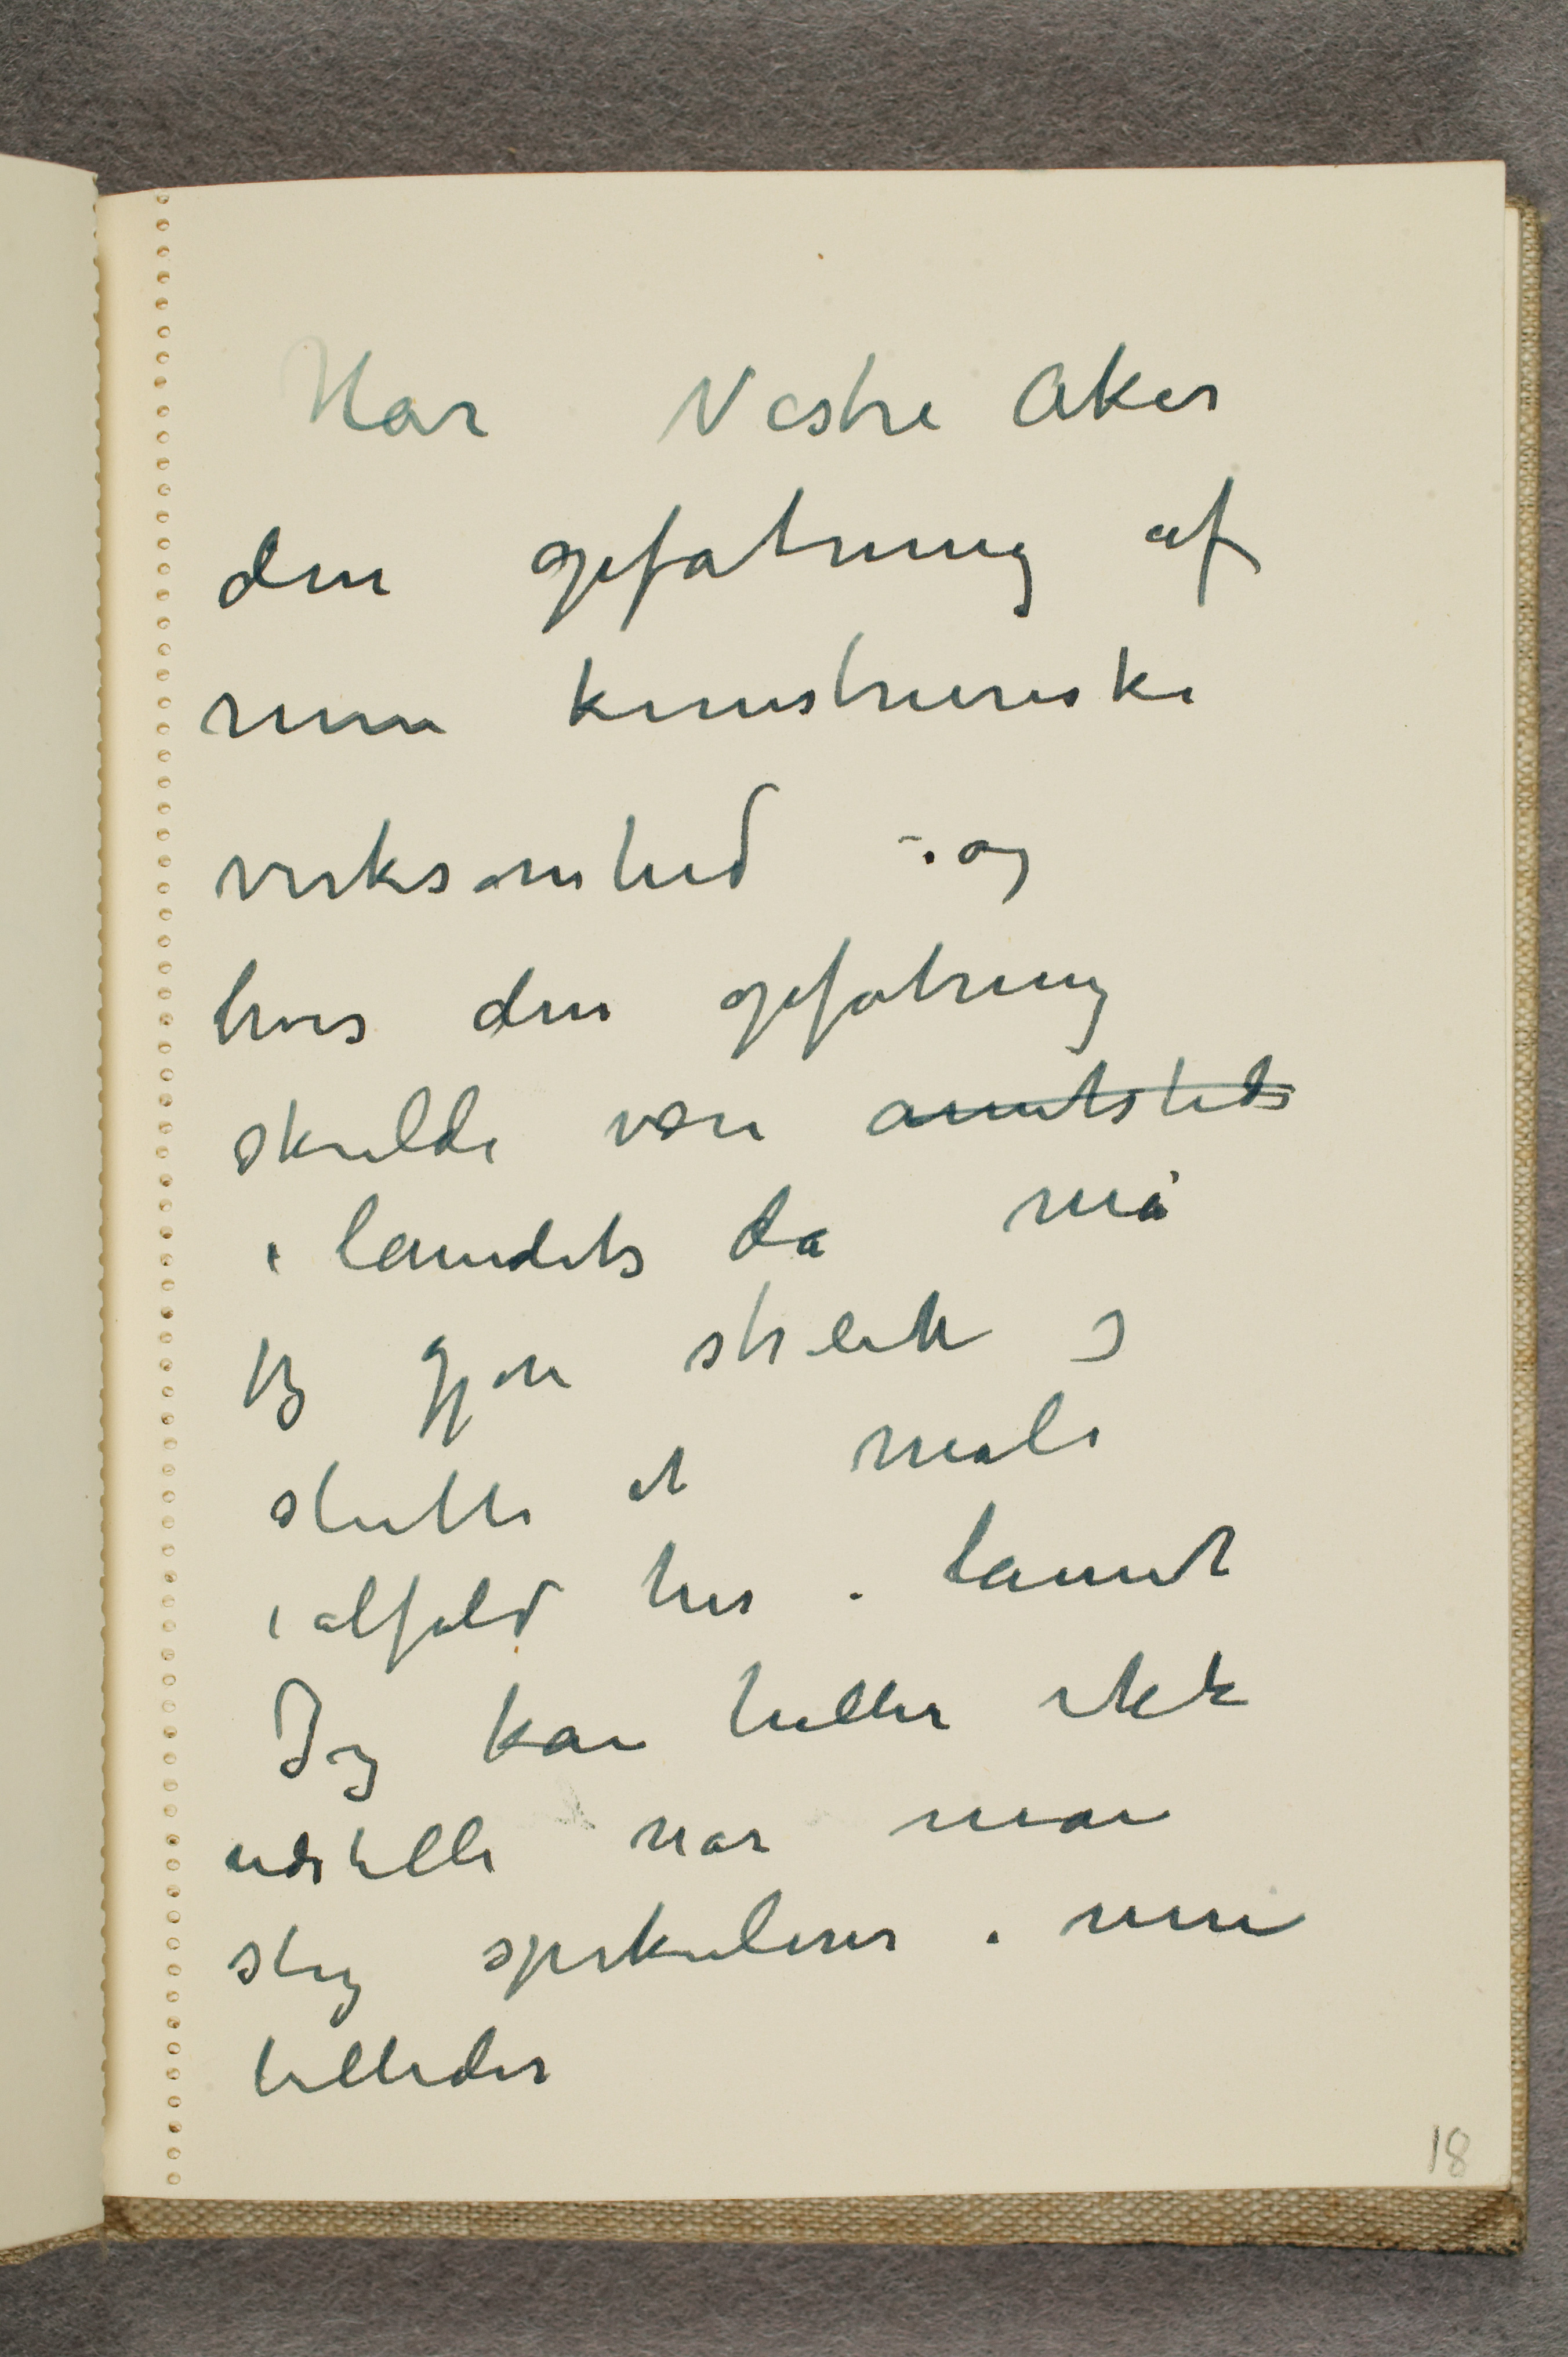 Har Vestre Aker
den opfatning af
min kunstneriske
virksomhed – og
hvis den opfatning
skulde være annetsteds
i landets da må
jeg gjøre streik og
slutte at male
ialfald her i landet
Jeg kan heller ikke
udstille når man
slig spekulerer i mine
billeder
18